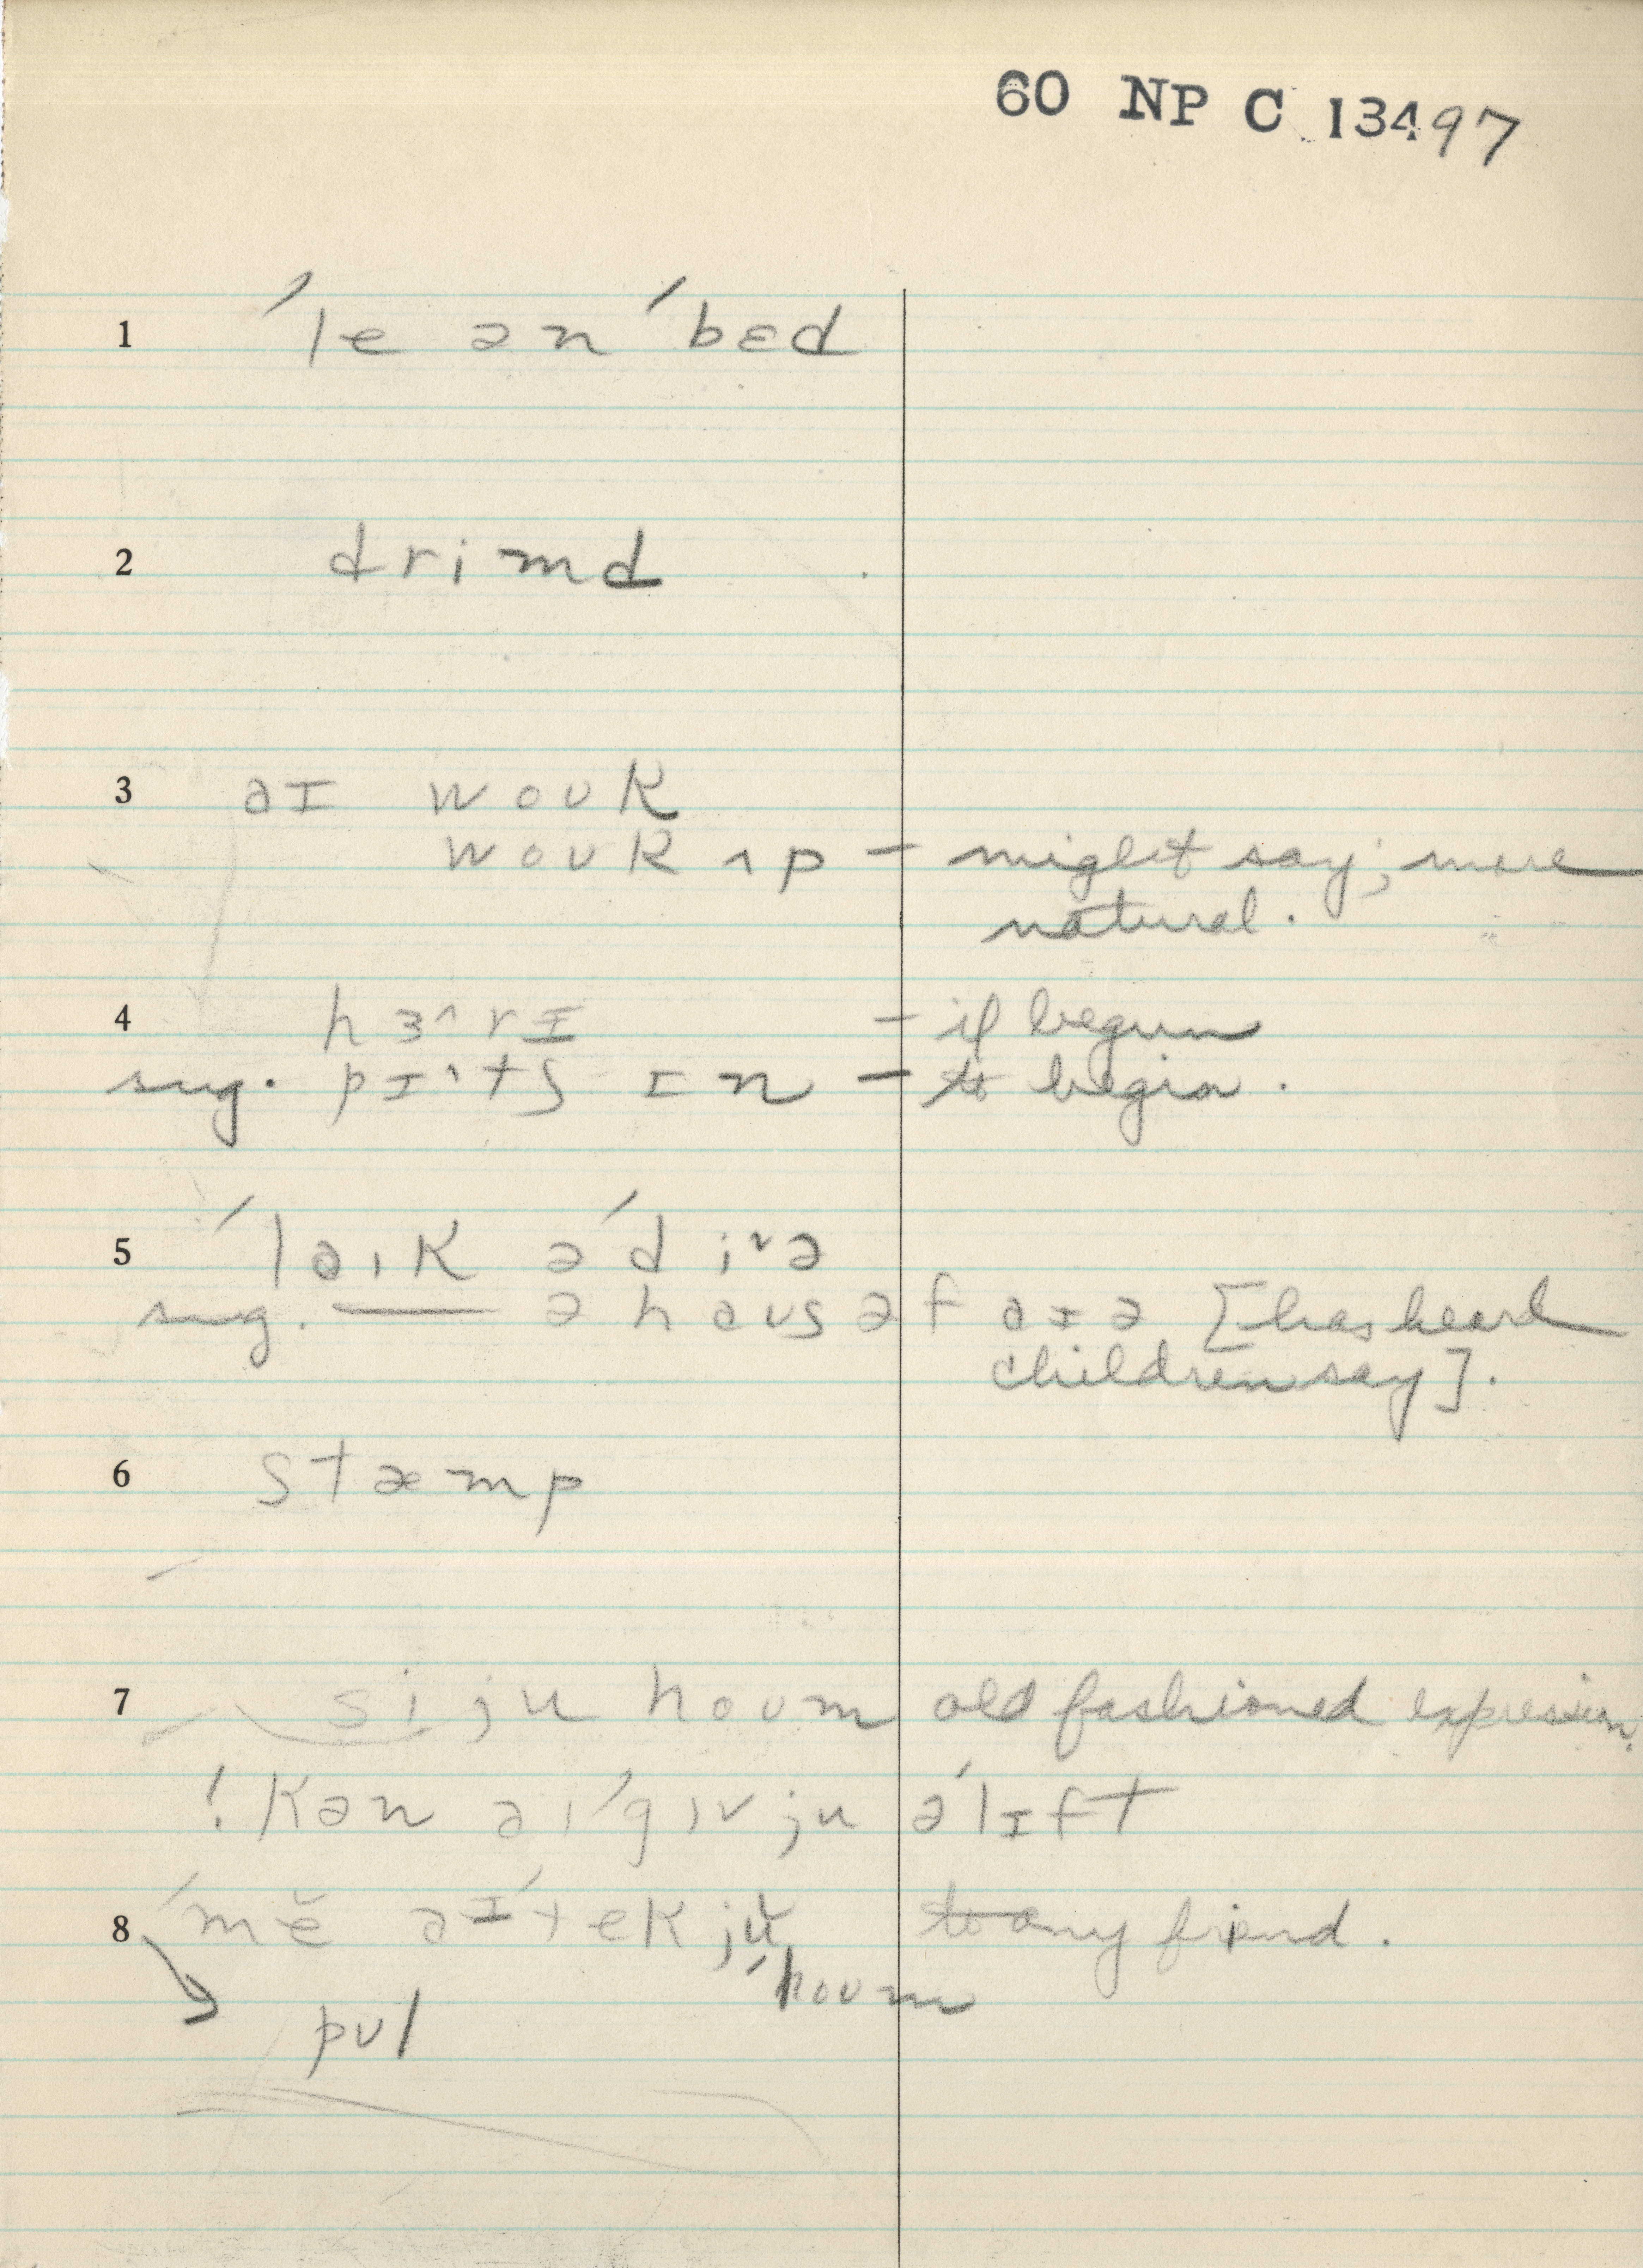 60 NP C 13497
1 ˈle ən ˈbɛd
2 drimd
3 aɪ woʊk
woʊk ʌp – might say; more
natural.
4 hɜ^rɪ – if begun
sug. pɪ^tʃ ɪn – to begin.
5 ˈlaɪk ə ˈdi˅ə
sug. —— ə haus əf aɪə [has heard
children say].
6 stæmp
7 si ju houm old fashioned expression.
! kən aɪ ˈgɪv ju ə ˈlɪft
8 ˈmĕ aɪ ˈtek jŭ to any friend.
ˈhoʊm
pʊl